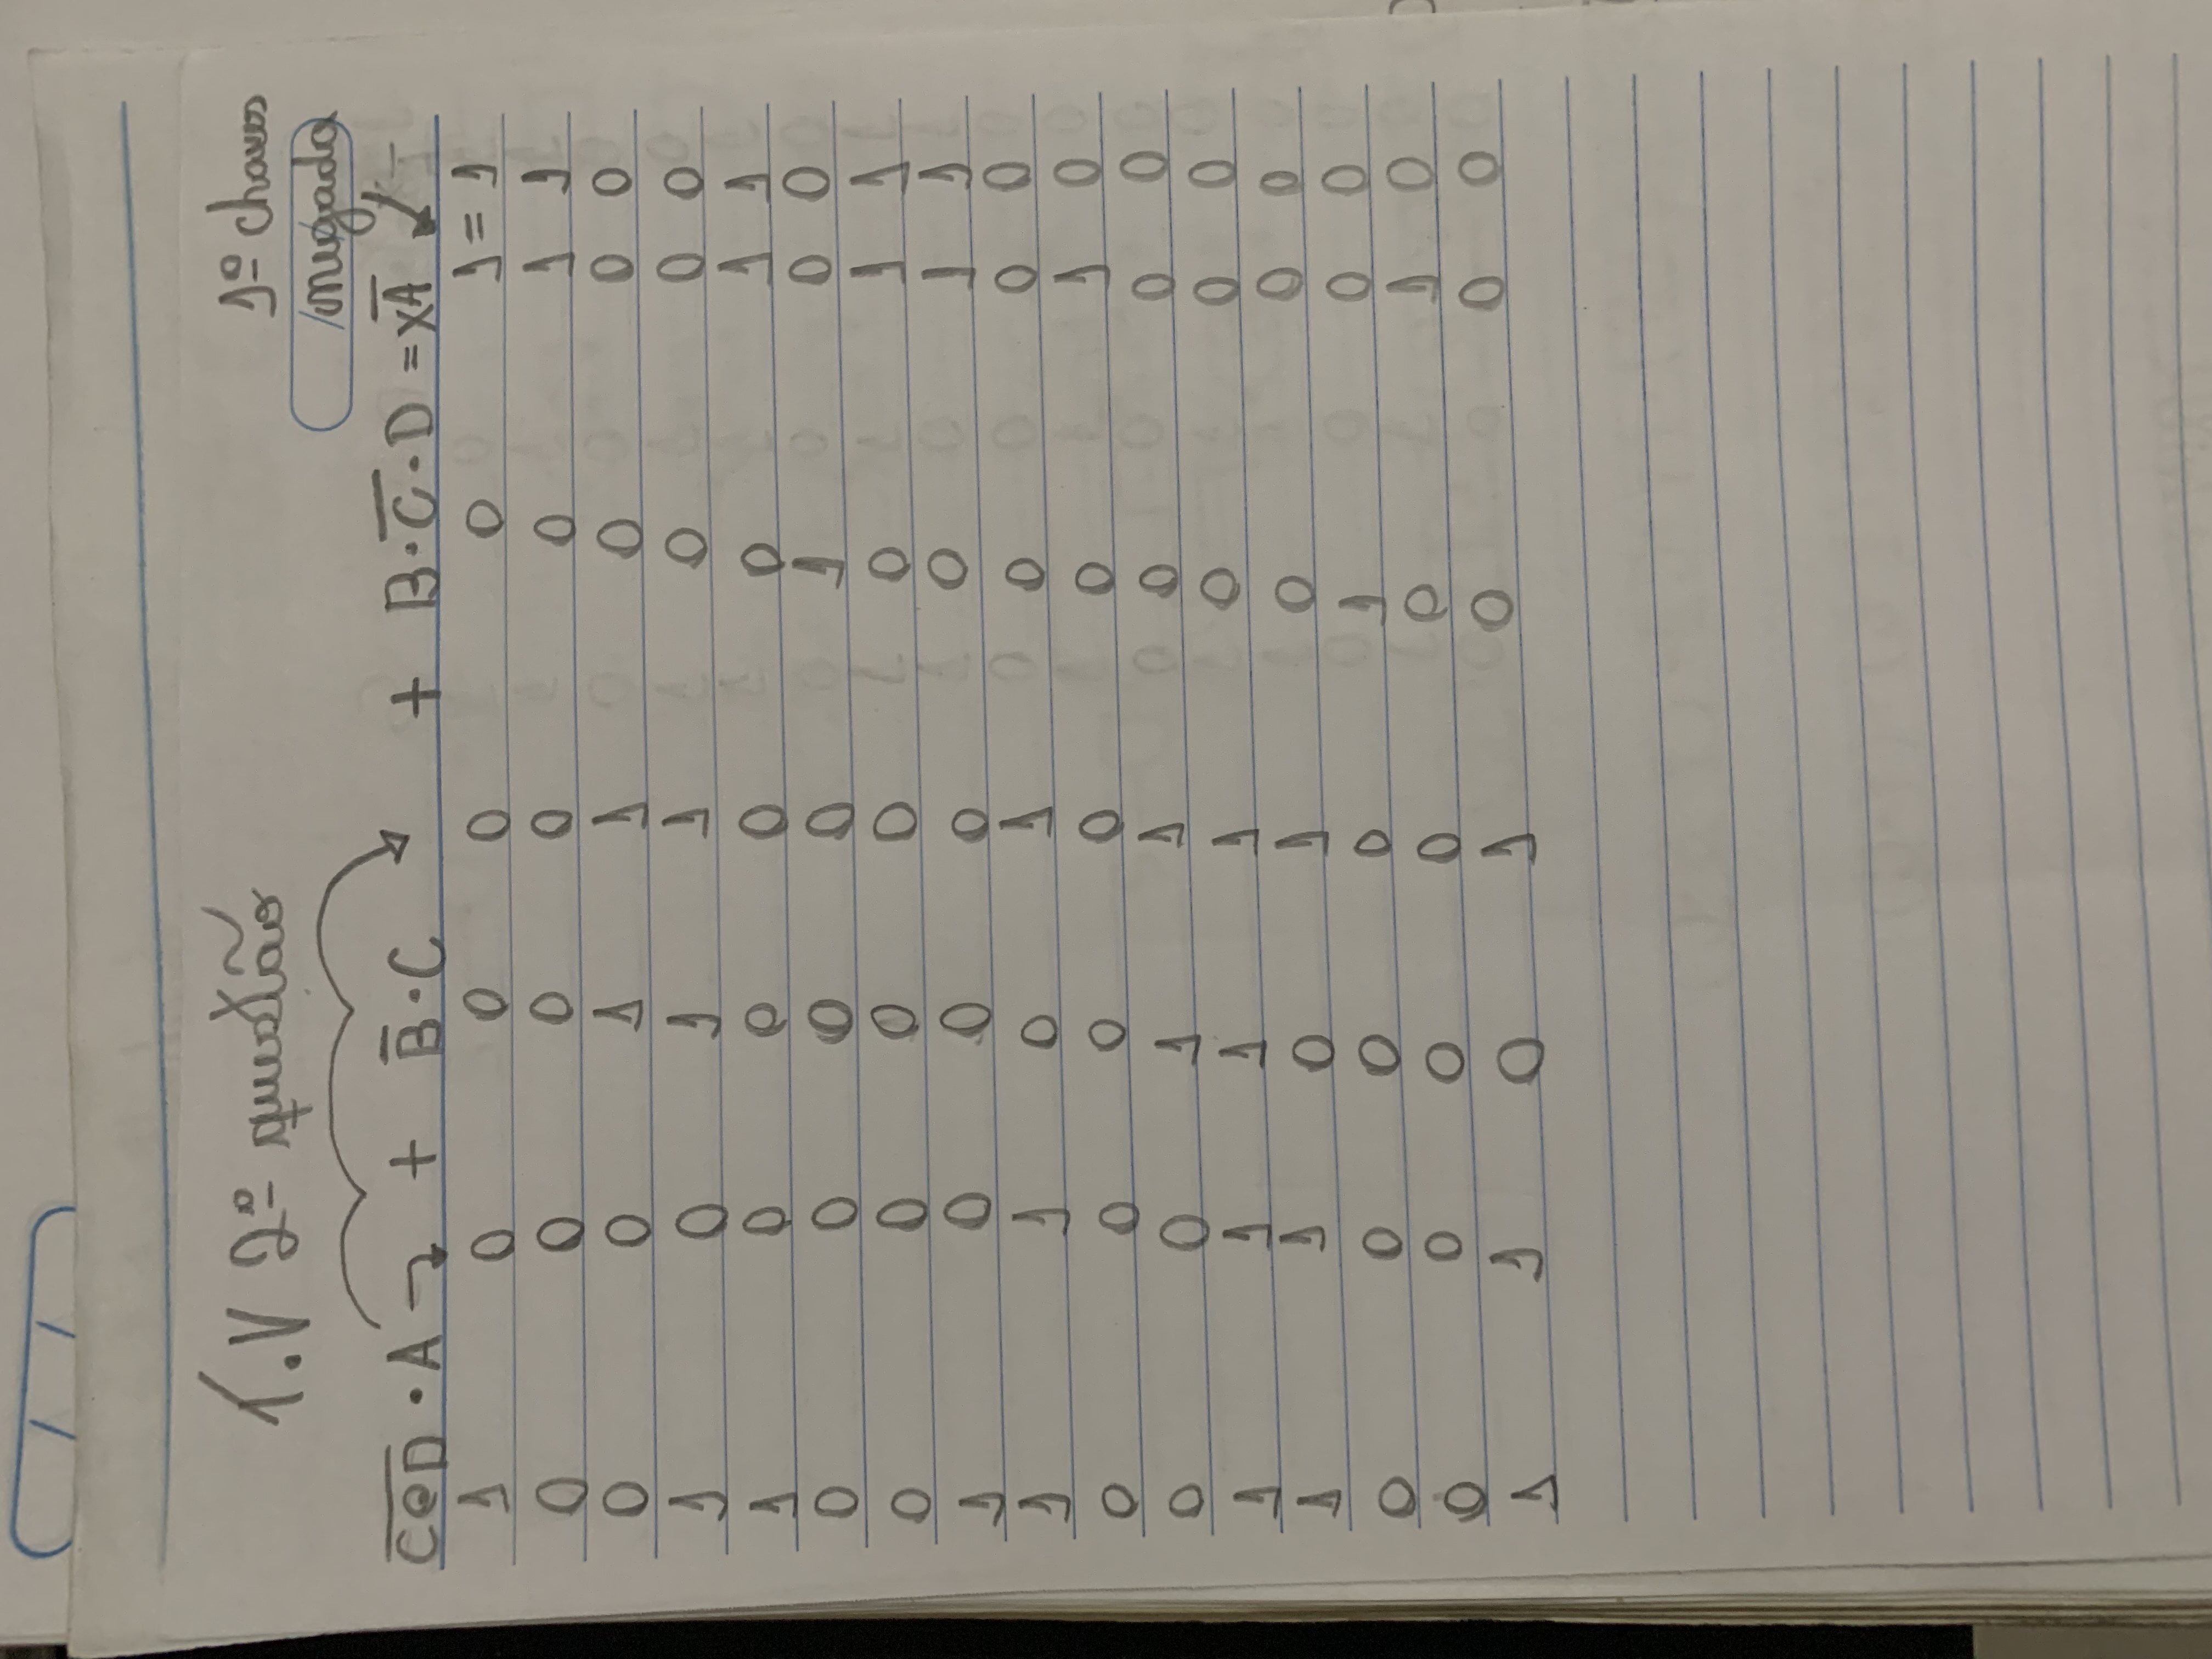 T.V 2º questão
1º chaves
negada
C⊕D · A → + B̅·C + B·C̅·D = xA̅
1 0 0 0 0 1 = 1
0 0 0 0 0 1 1
0 0 1 1 0 0 0
1 0 1 1 0 0 0
1 0 0 0 0 1 1
0 0 0 0 1 0 0
0 0 0 0 0 1 1
1 0 0 0 0 1 1
1 1 0 1 0 0 0
0 0 0 0 0 1 0
0 0 1 1 0 0 0
1 1 1 1 0 0 0
1 1 0 1 0 0 0
0 0 0 0 1 0 0
0 0 0 0 0 1 0
1 1 0 1 0 0 0